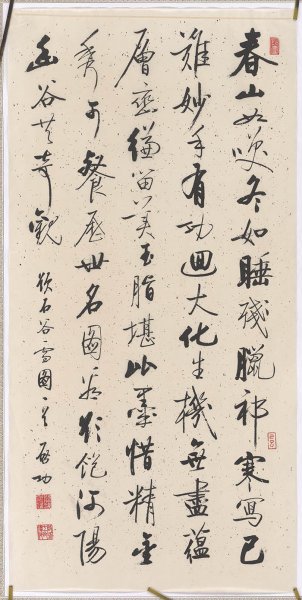 春山如笑冬如睡殘臘祁寒寫已
難妙手有功迴大化生機無盡蘊
層巒縑留美玉脂堪比墨惜精金
秀可餐歷世名圖飽河陽
幽谷共奇觀 題石谷雪圖一首 啟功